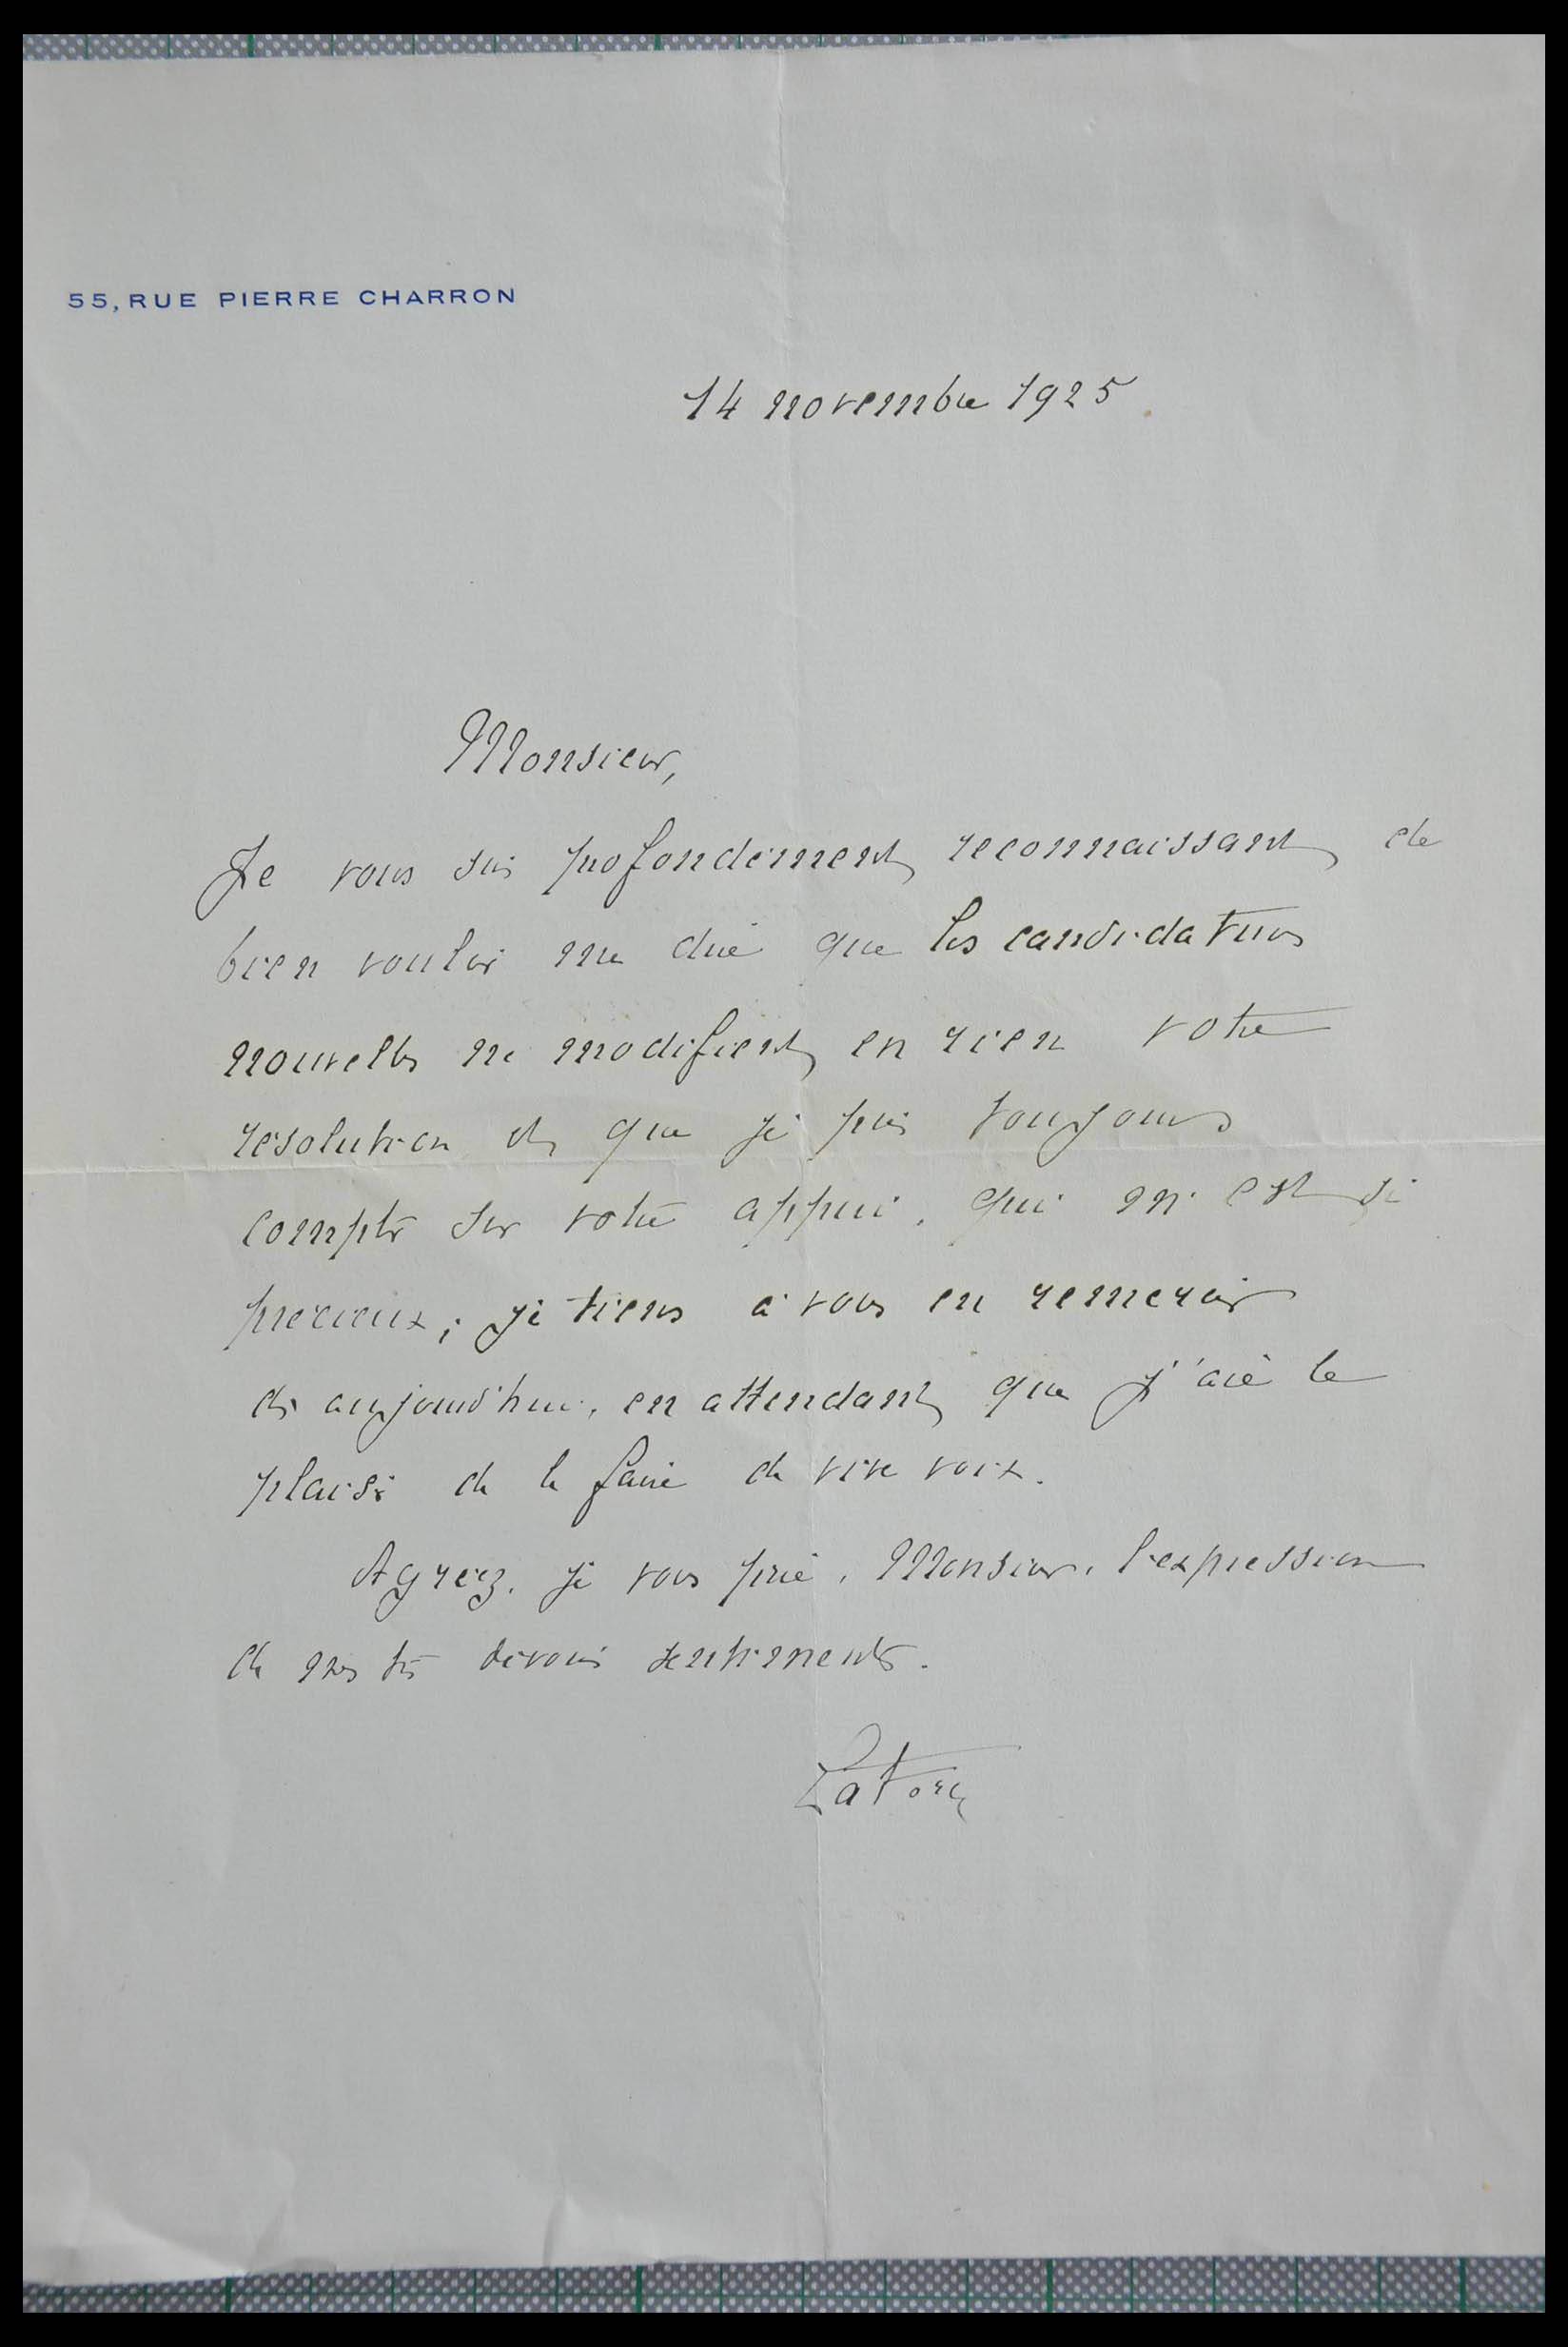 55, RUE PIERRE CHARRON
14 novembre 1925
Monsieur,
Je vous suis profondément reconnaissant de
bien vouloir me dire que les candidatures
nouvelles ne modifient en rien votre
résolution et que je puis toujours
compter sur votre appui, qui m'est si
précieux ; je tiens à vous en remercier
dès aujourd'hui, en attendant que j'aie le
plaisir de le faire de vive voix.
Agréez, je vous prie, Monsieur, l'expression
de mes très dévoués sentiments.
La Force